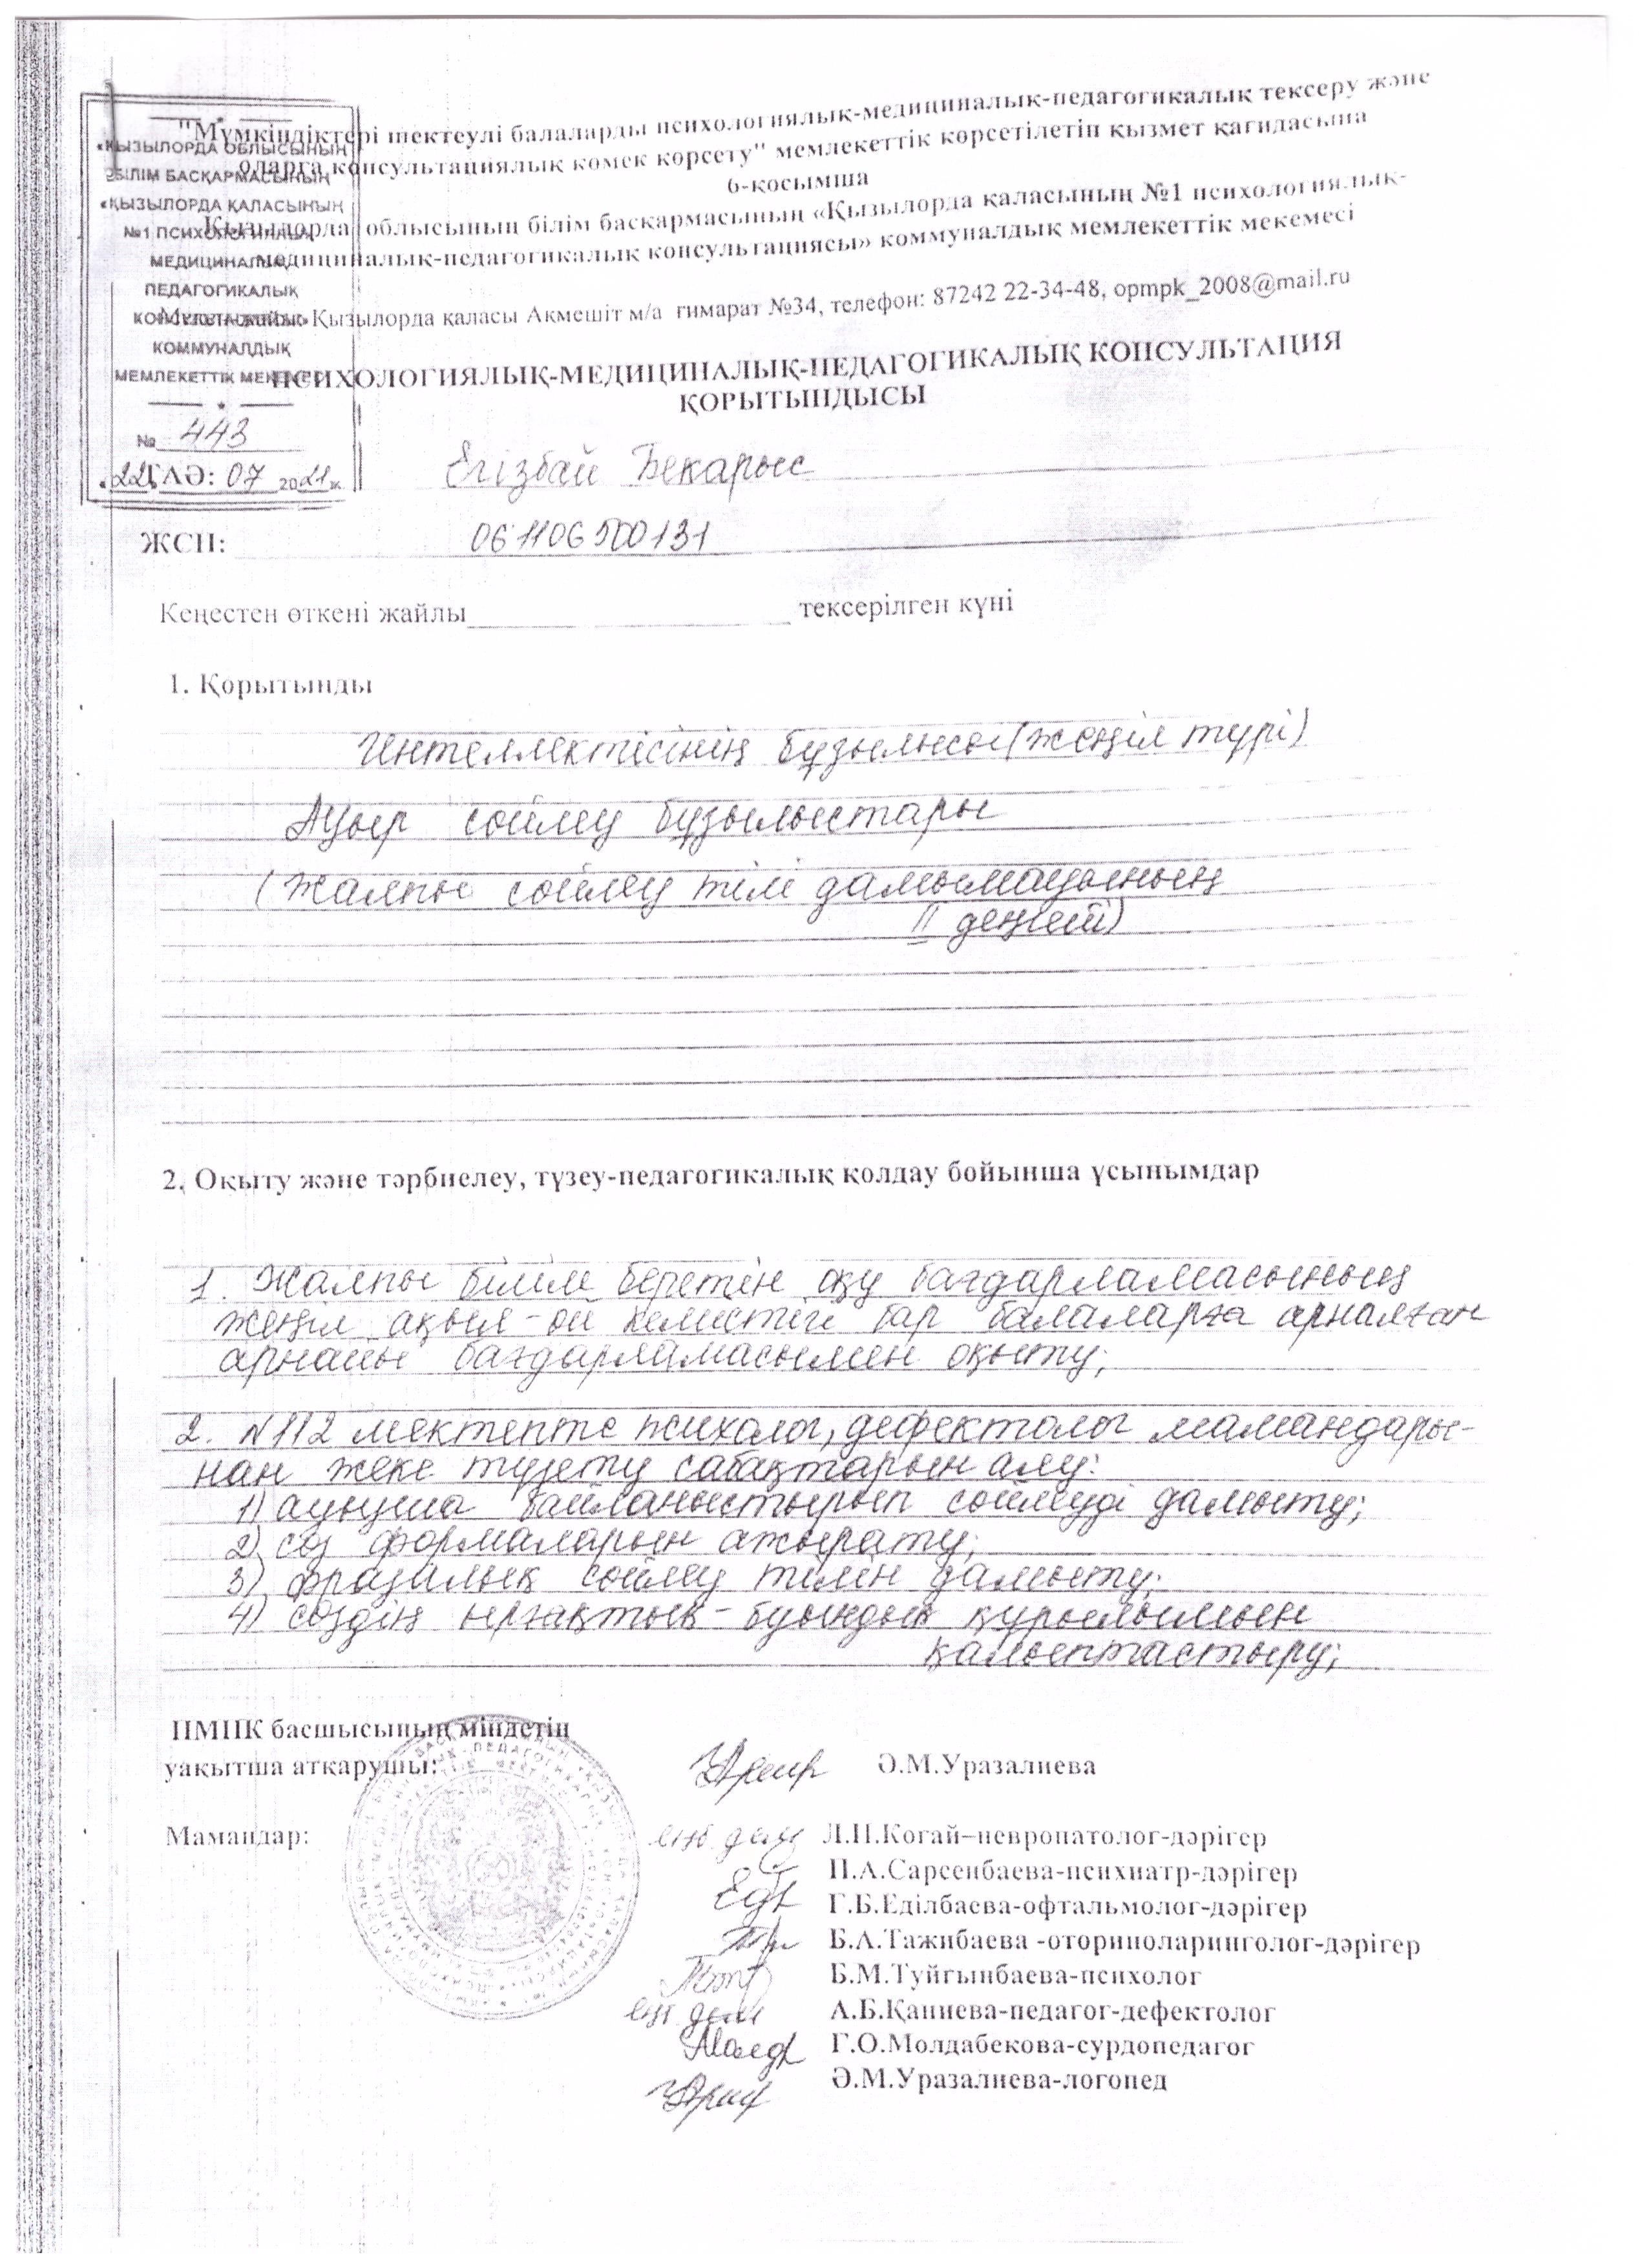 "Мүмкіндіктері шектеулі балаларды психологиялық-медициналық-педагогикалық тексеру және
оларға консультациялық көмек көрсету" мемлекеттік көрсетілетін қызмет қағидасына
6-қосымша
Қызылорда облысының білім басқармасының «Қызылорда қаласының №1 психологиялық-
медициналық-педагогикалық консультациясы» коммуналдық мемлекеттік мекемесі
Қызылорда қаласы Ақмешіт м/а ғимарат №34, телефон: 87242 22-34-48, opmpk_2008@mail.ru
«ҚЫЗЫЛОРДА ОБЛЫСЫНЫҢ
БІЛІМ БАСҚАРМАСЫНЫҢ
«ҚЫЗЫЛОРДА ҚАЛАСЫНЫҢ
№1 ПСИХОЛОГИЯЛЫҚ
МЕДИЦИНАЛЫҚ
ПЕДАГОГИКАЛЫҚ
КОНСУЛЬТАЦИЯСЫ»
КОММУНАЛДЫҚ
МЕМЛЕКЕТТІК МЕКЕМЕСІ
№ 443
«22» 07 2021 ж.
ПСИХОЛОГИЯЛЫҚ-МЕДИЦИНАЛЫҚ-ПЕДАГОГИКАЛЫҚ КОНСУЛЬТАЦИЯ
ҚОРЫТЫНДЫСЫ
ТАӘ: Егізбай Бекарыс
ЖСН: 061106500131
Кеңестен өткені жайлы тексерілген күні
1. Қорытынды
Интеллектісінің бұзылысы (жеңіл түрі)
Ауыр сөйлеу бұзылыстары
(жалпы сөйлеу тілі дамымауының
II деңгейі)
2. Оқыту және тәрбиелеу, түзеу-педагогикалық қолдау бойынша ұсынымдар
1. Жалпы білім беретін оқу бағдарламасының
жеңіл ақыл-ой кемістігі бар балаларға арналған
арнайы бағдарламасымен оқыту;
2. №112 мектепте психолог, дефектолог мамандары-
нан жеке түзету сабақтарын алу:
1) ауызша байланыстырып сөйлеуді дамыту;
2) сөз формаларын ажырату;
3) фразалық сөйлеу тілін дамыту;
4) сөздің ырғақтық-буындық құрылымын
қалыптастыру;
ПМПК басшысының міндетін
уақытша атқарушы: Ә.М.Уразалиева
Мамандар: еңб дем Л.Н.Когай–невропатолог-дәрігер
П.А.Сарсенбаева-психиатр-дәрігер
Г.Б.Еділбаева-офтальмолог-дәрігер
Б.А.Тажибаева -оториноларинголог-дәрігер
Б.М.Туйгынбаева-психолог
еңб дем А.Б.Қаниева-педагог-дефектолог
Г.О.Молдабекова-сурдопедагог
Ә.М.Уразалиева-логопед